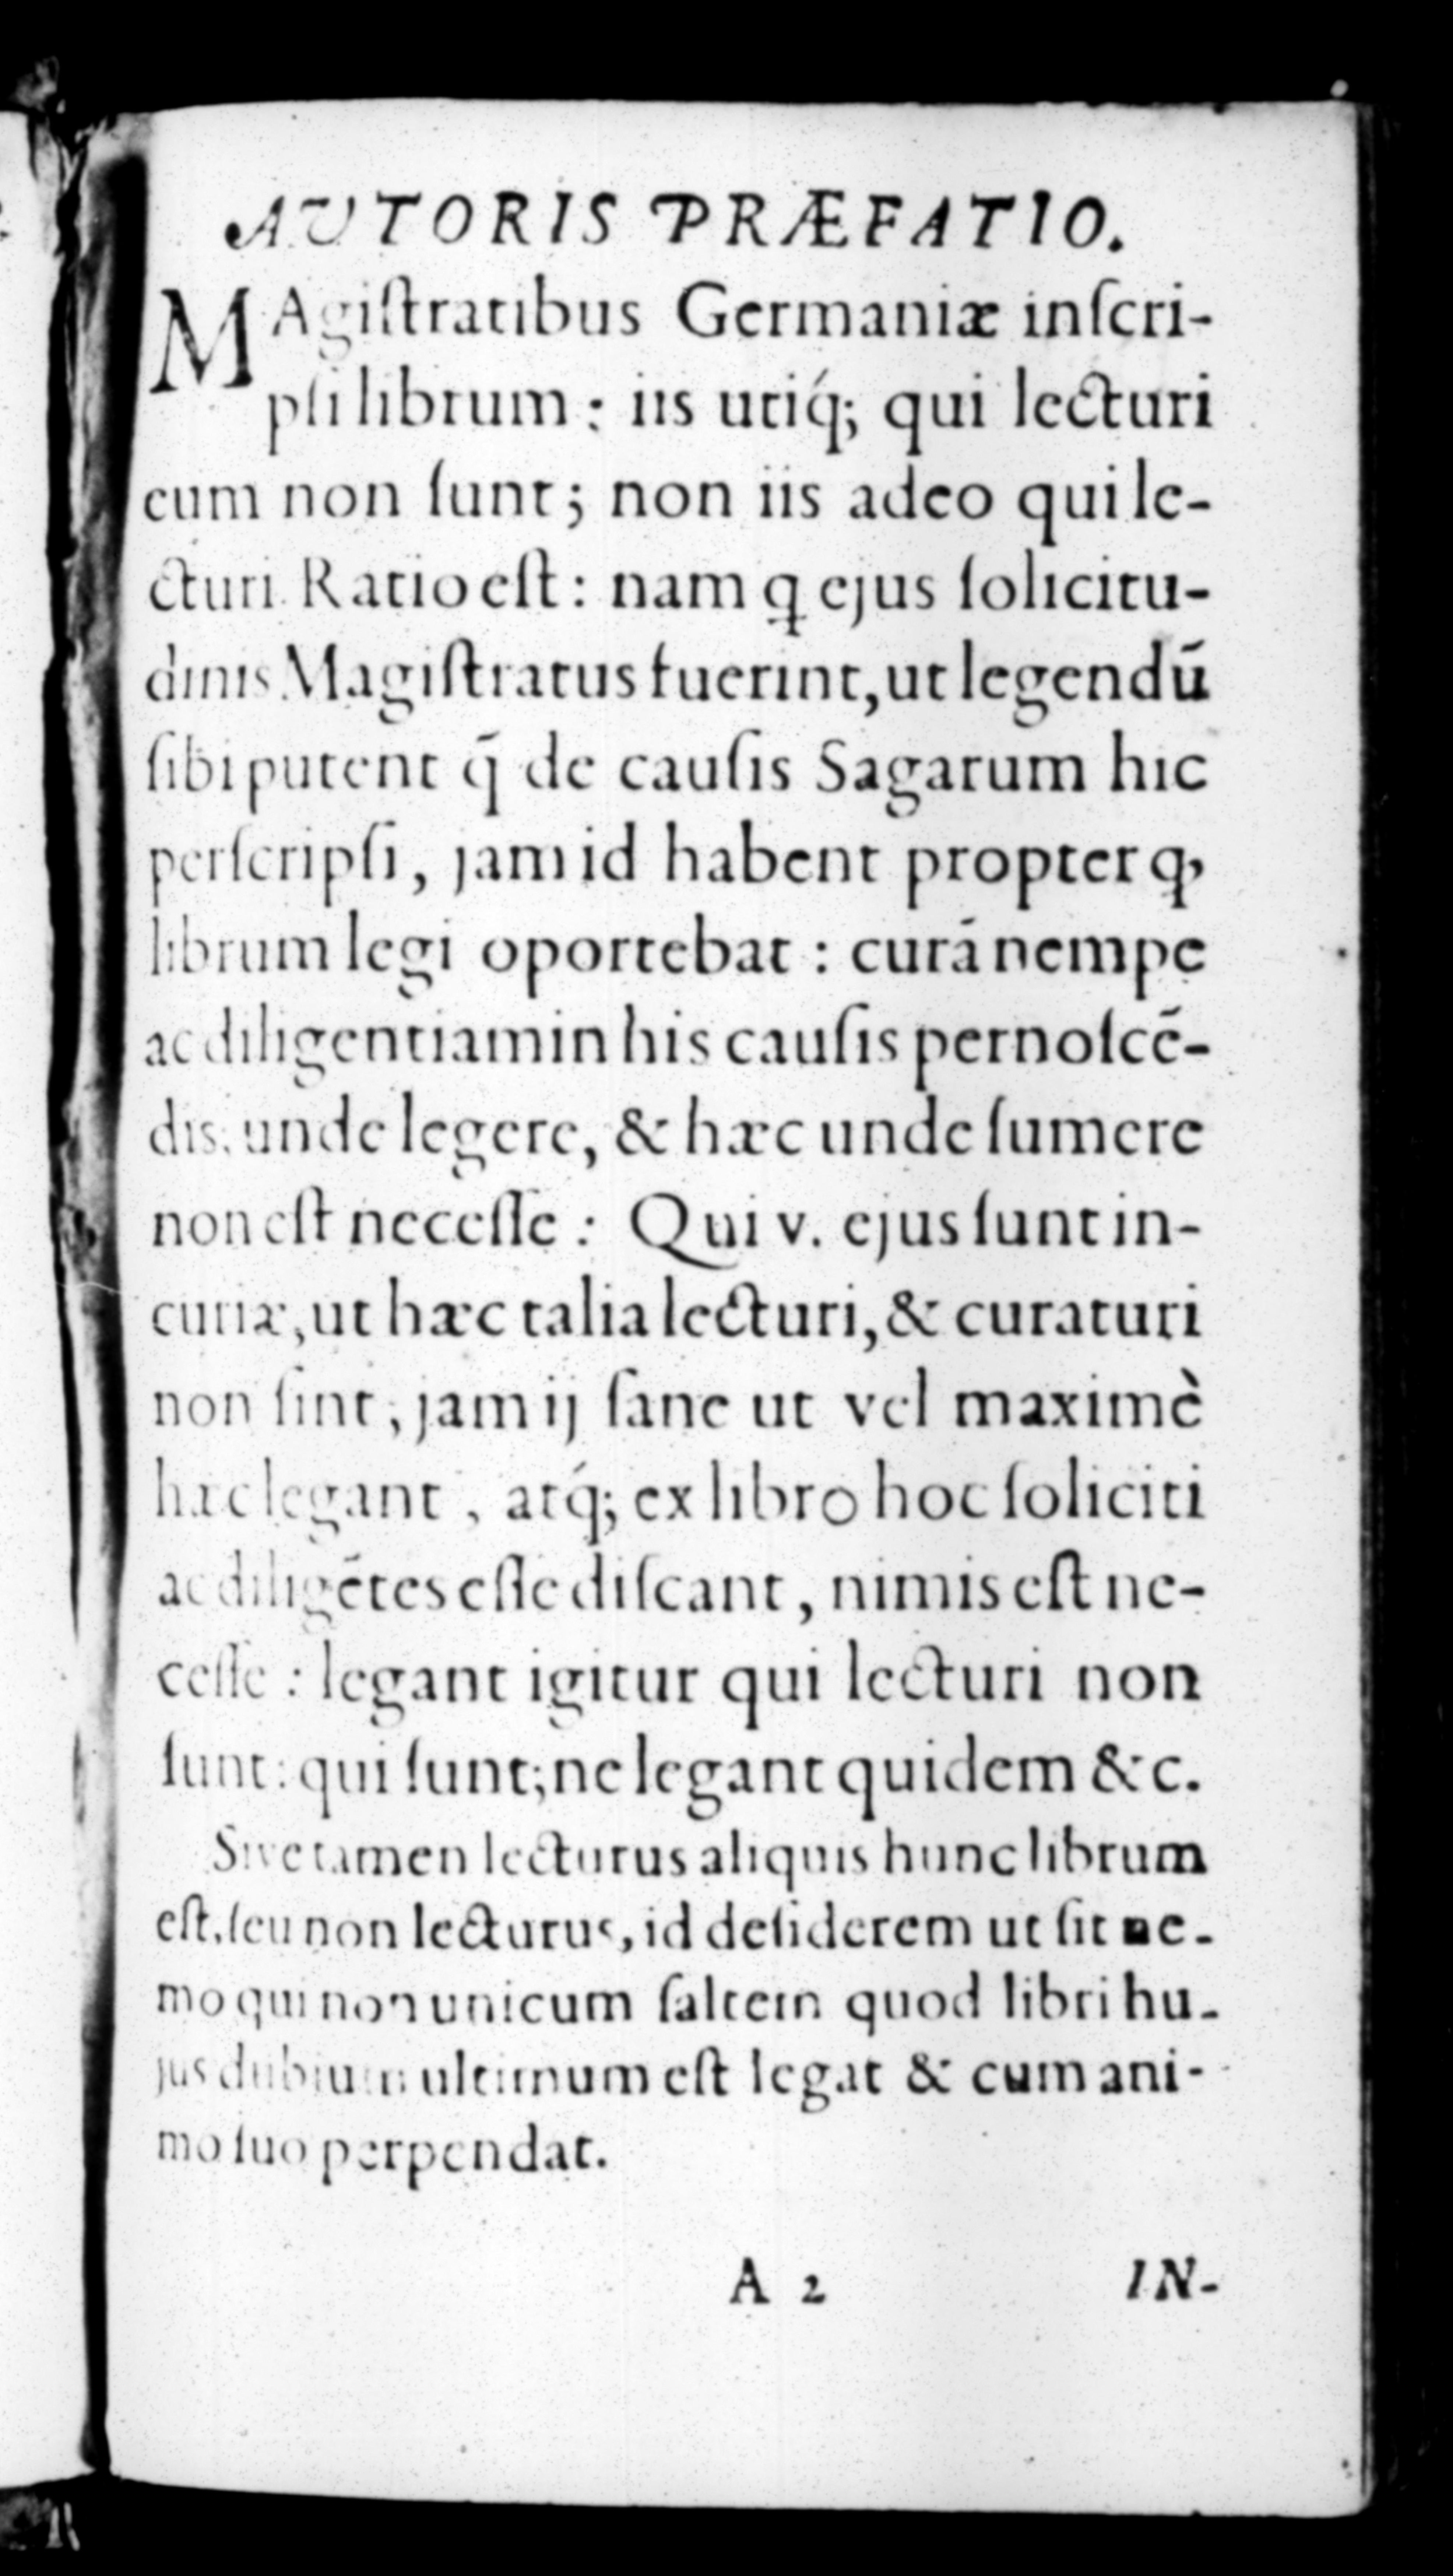 AUTORIS PRÆFATIO.
MAgiſtratibus Germaniæ inſcri-
pſi librum: iis utiq́; qui lecturi
eum non ſunt; non iis adeo qui le-
cturi. Ratio eſt: nam q ejus ſolicitu-
dinis Magiſtratus fuerint, ut legendū
ſibi putent q̄ de cauſis Sagarum hic
perſcripſi, jam id habent propter q,
librum legi oportebat: curā nempe
ac diligentiam in his cauſis pernoſcē-
dis: unde legere, & hæc unde ſumere
non eſt neceſſe: Qui v. ejus ſunt in-
curiæ, ut hæc talia lecturi, & curaturi
non ſint, jam ij ſane ut vel maximè
hæc legant, atq́; ex libro hoc ſoliciti
ac diligētes eſſe diſcant, nimis eſt ne-
ceſſe: legant igitur qui lecturi non
ſunt: qui ſunt; ne legant quidem &c.
Sive tamen lecturus aliquis hunc librum
eſt, ſeu non lecturus, id deſiderem ut ſit ne-
mo qui non unicum ſaltem quod libri hu-
jus dubium ultimum eſt legat & cum ani-
mo ſuo perpendat.
A 2 IN-